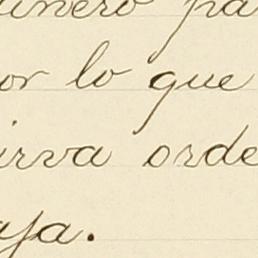 dinero pa
or lo que
irva orde
aja.